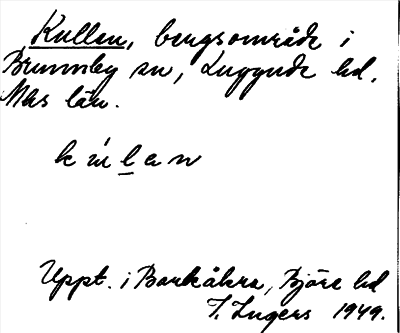 Kullen, bergsområde i
Brunnby sn, Luggude hd,
Mhs län.
Uppt. i Barkåkra, Bjäre hd
I. Ingers 1949.